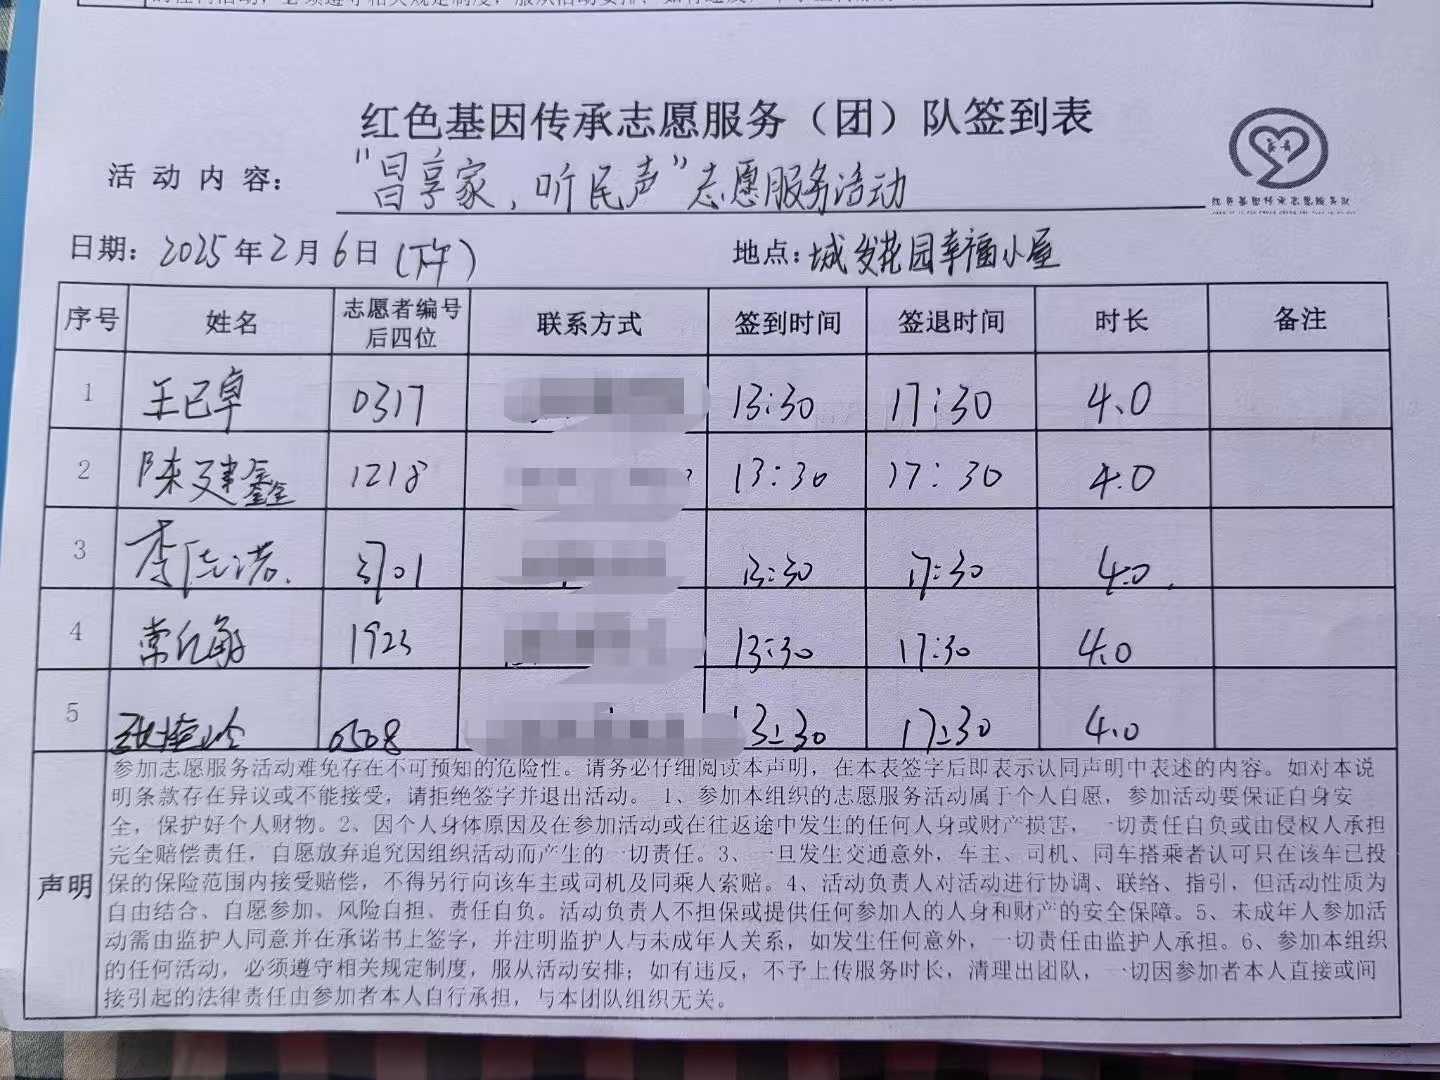 红色基因传承志愿服务（团）队签到表
活动内容：“冒享家，听民声”志愿服务活动
红色基因传承志愿服务队
日期：2025年2月6日（下午） 地点：城发花园幸福小屋
序号 姓名 志愿者编号后四位 联系方式 签到时间 签退时间 时长 备注
1 王已卓 0317 13:30 17:30 4.0
2 陈建鑫 1218 13:30 17:30 4.0
3 李志诺 3701 13:30 17:30 4.0
4 常亿敏 1923 13:30 17:30 4.0
5 0508 13:30 17:30 4.0
声明
参加志愿服务活动难免存在不可预知的危险性。请务必仔细阅读本声明，在本表签字后即表示认同声明中表述的内容。如对本说
明条款存在异议或不能接受，请拒绝签字并退出活动。 1、参加本组织的志愿服务活动属于个人自愿，参加活动要保证自身安
全，保护好个人财物。2、因个人身体原因及在参加活动或在往返途中发生的任何人身或财产损害，一切责任自负或由侵权人承担
完全赔偿责任，自愿放弃追究因组织活动而产生的一切责任。3、一旦发生交通意外，车主、司机、同车搭乘者认可只在该车已投
保的保险范围内接受赔偿，不得另行向该车主或司机及同乘人索赔。4、活动负责人对活动进行协调、联络、指引，但活动性质为
自由结合、自愿参加、风险自担、责任自负。活动负责人不担保或提供任何参加人的人身和财产的安全保障。5、未成年人参加活
动需由监护人同意并在承诺书上签字，并注明监护人与未成年人关系，如发生任何意外，一切责任由监护人承担。6、参加本组织
的任何活动，必须遵守相关规定制度，服从活动安排；如有违反，不予上传服务时长，清理出团队，一切因参加者本人直接或间
接引起的法律责任由参加者本人自行承担，与本团队组织无关。